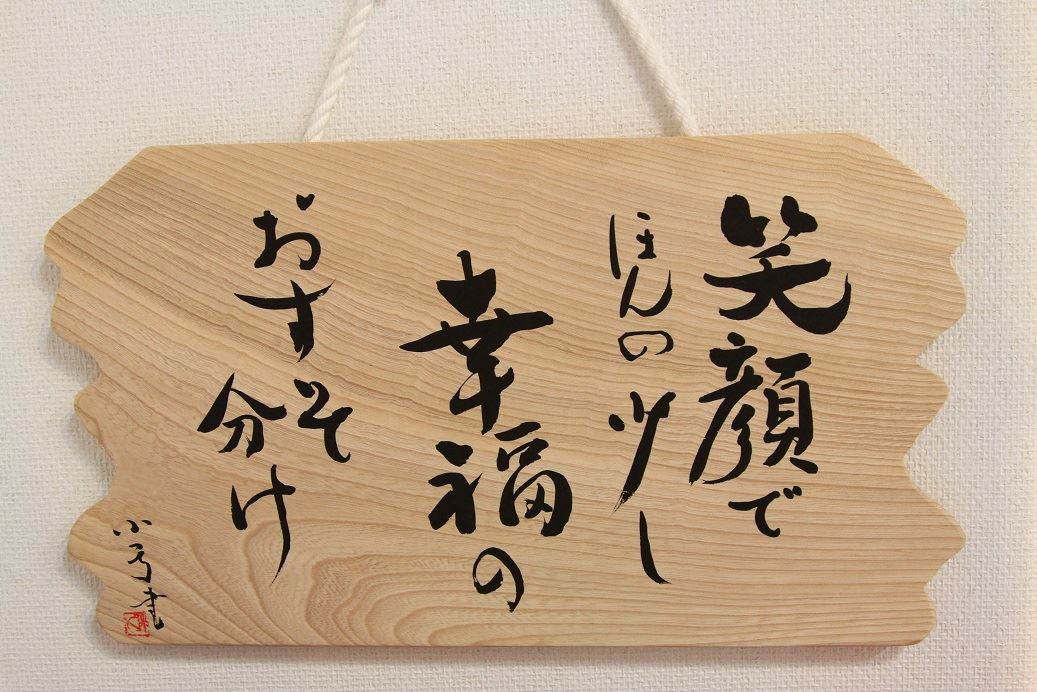 笑顔で
ほんの少し
幸福の
おすそ分け